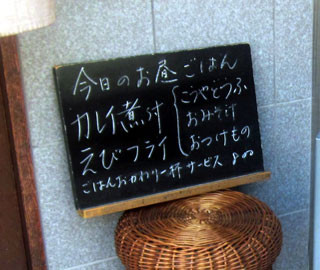 今日のお昼ごはん
カレイ煮付
えびフライ
こうやどうふ
おみそ汁
おつけもの
ごはんおかわり一杯サービス 800